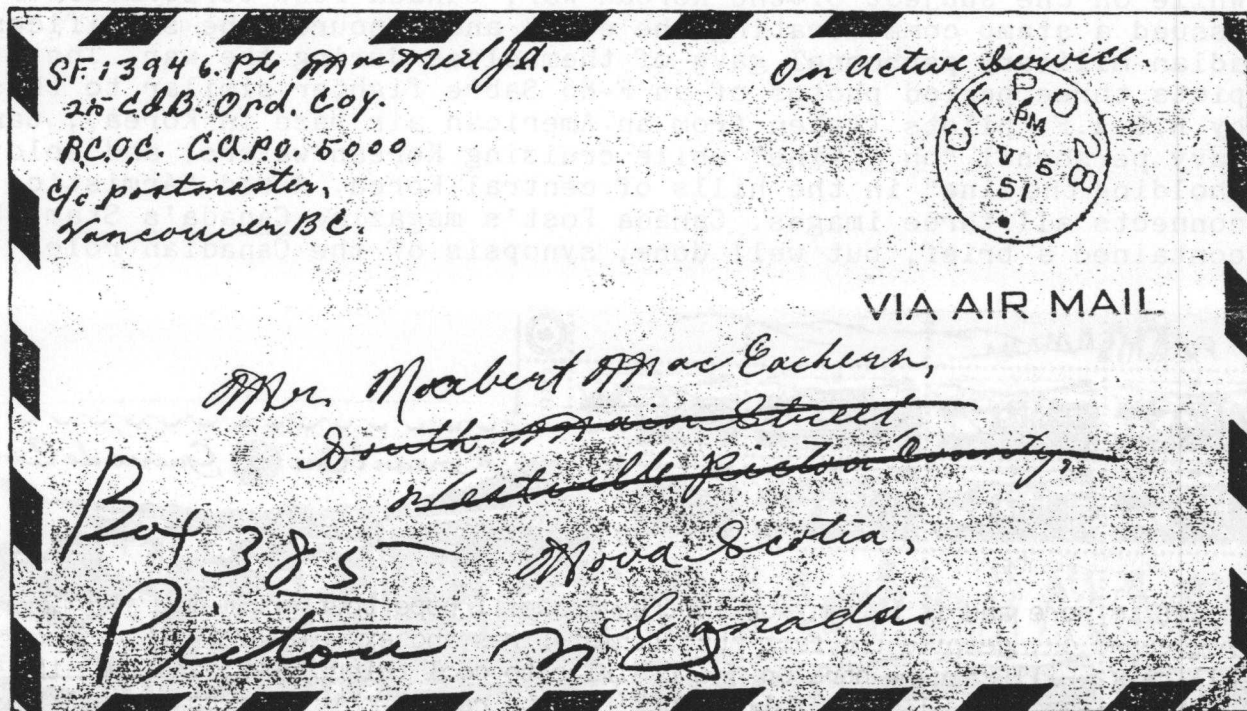 SF13946. Pte Mac Neil J.A.
25 C.I.B. Ord. Coy.
R.C.O.C. C.A.P.O. 5000
c/o postmaster,
Vancouver B.C.
On Active Service.
CFPO 28
PM
V 6
51
VIA AIR MAIL
Mr. Norbert Mac Eachern,
South Main Street,
Westville Pictou County,
Box 385
Nova Scotia,
Canada.
Pictou NS